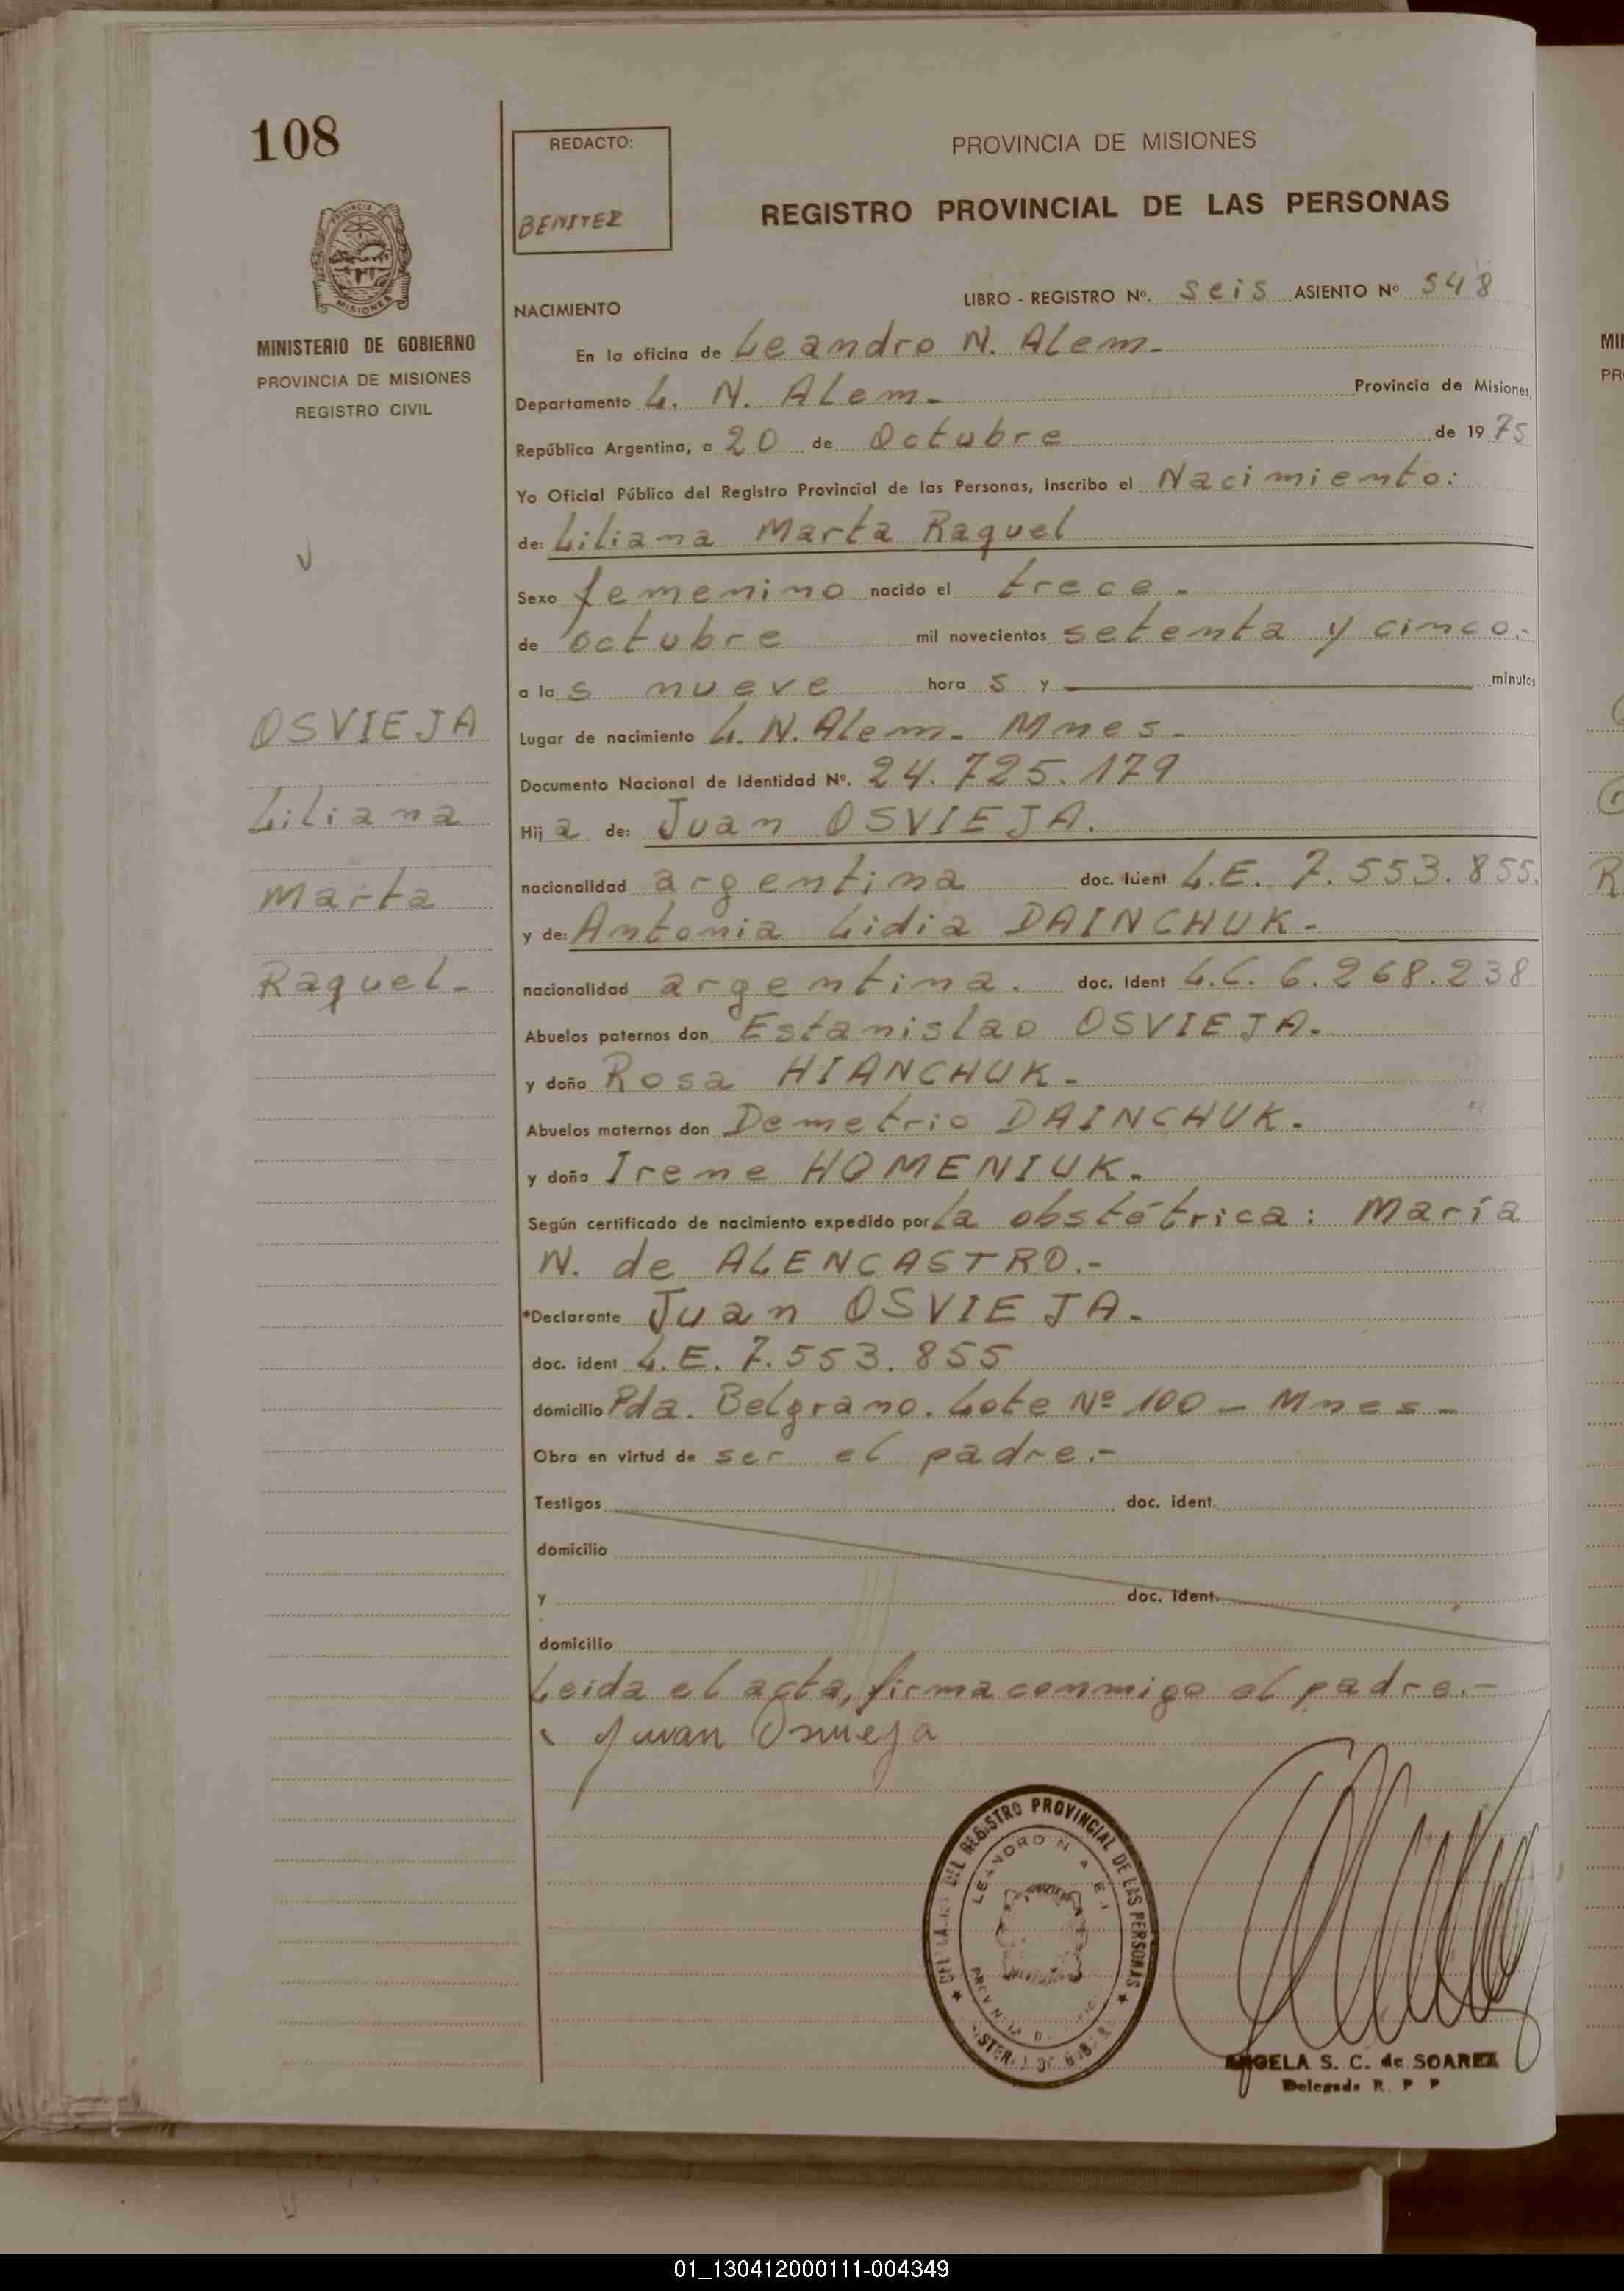 108
REDACTO:
BENITEZ
PROVINCIA DE MISIONES
REGISTRO PROVINCIAL DE LAS PERSONAS
MISIONES
MINISTERIO DE GOBIERNO
PROVINCIA DE MISIONES
REGISTRO CIVIL
LIBRO - REGISTRO Nº. Seis ASIENTO Nº 548
NACIMIENTO
En la oficina de Leandro N. Alem-
Departamento L. N. Alem- Provincia de Misiones,
República Argentina, a 20 de Octubre de 1975
Yo Oficial Público del Registro Provincial de las Personas, inscribo el Nacimiento:
de: Liliana Marta Raquel
Sexo femenino nacido el trece-
de octubre mil novecientos setenta y cinco.-
a las nueve horas y minutos
Lugar de nacimiento L. N. Alem- Mnes-
Documento Nacional de Identidad Nº. 24.725.179
Hija de: Juan OSVIEJA.
nacionalidad argentina doc. Ident L.E. 7.553.855.
y de: Antonia Lidia DAINCHUK-
nacionalidad argentina. doc. Ident L.C. 6.268.238
Abuelos paternos don Estanislao OSVIEJA-
y doña Rosa HIANCHUK-
Abuelos maternos don Demetrio DAINCHUK-
y doña Irene HOMENIUK-
Según certificado de nacimiento expedido por la obstétrica: María
N. de ALENCASTRO.-
*Declarante Juan OSVIEJA-
doc. ident L.E. 7.553.855
domicilio Pda. Belgrano. Lote Nº 100 - Mnes-
Obra en virtud de ser el padre.-
Testigos doc. ident.
domicilio
y doc. ident.
domicilio
Leida el acta, firma conmigo el padre.-
Juan Osvieja
OSVIEJA
Liliana
Marta
Raquel-
DEL REGISTRO PROVINCIAL DE LAS PERSONAS
LEANDRO N
ANGELA S. C. de SOAREZ
Delegada R. P P
MI
PR
R
01_130412000111-004349